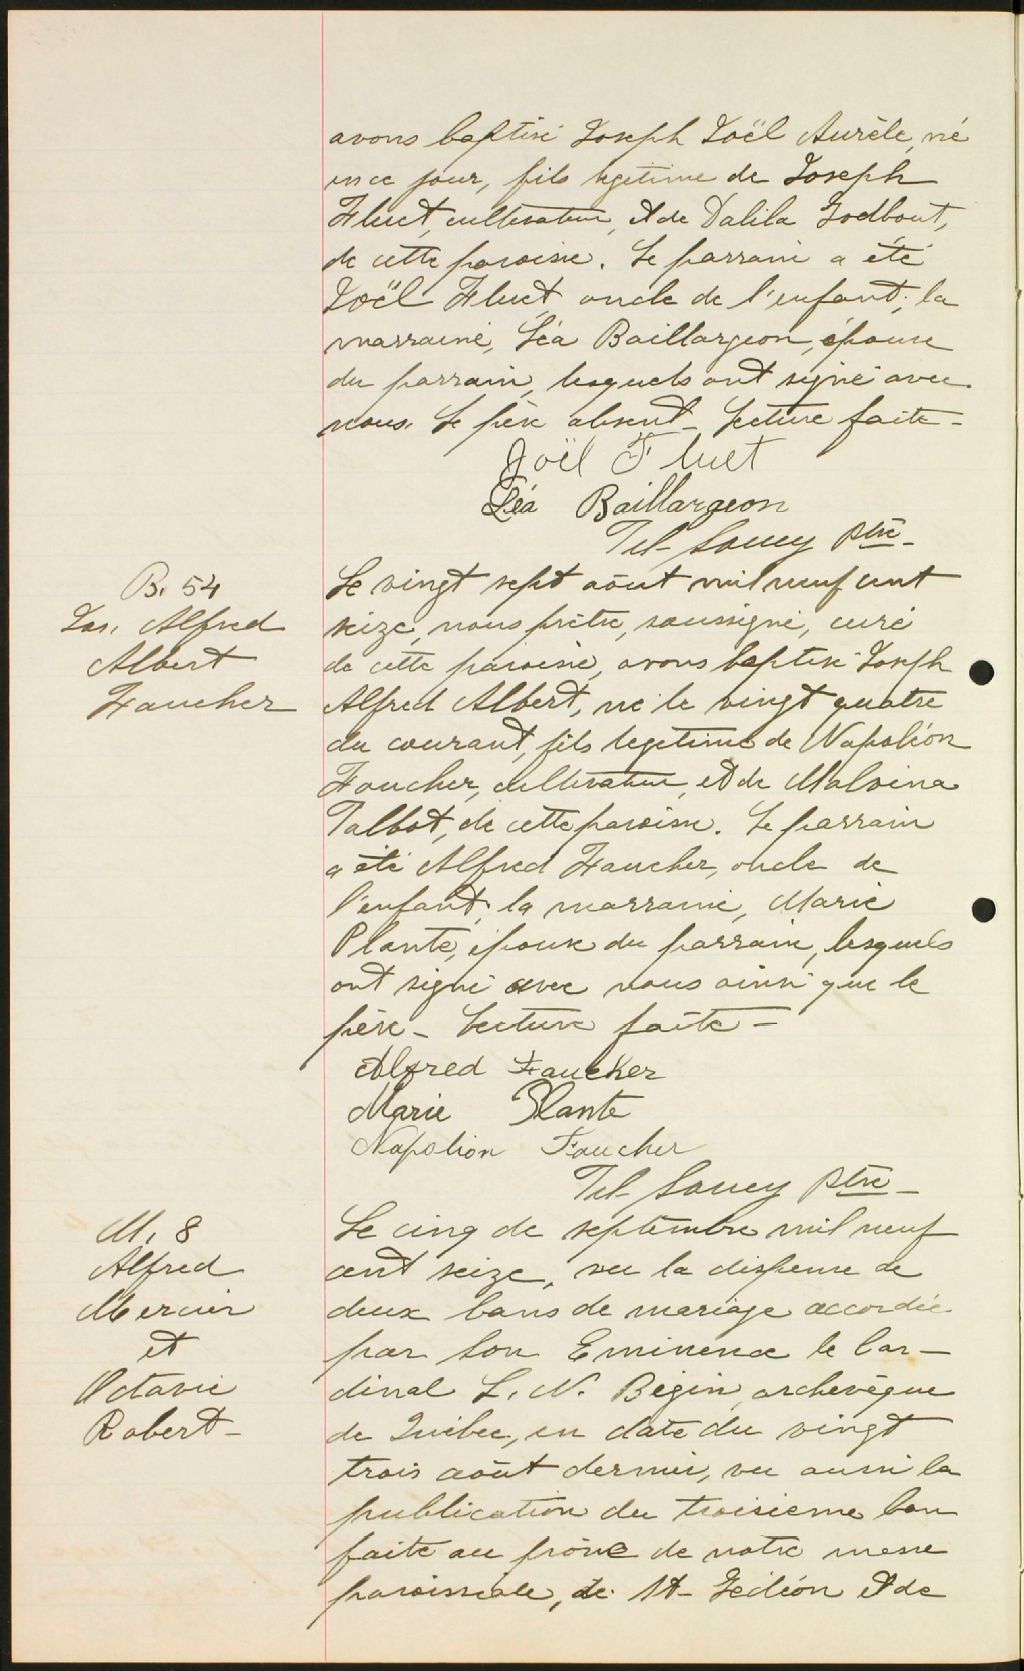 avons baptisé Joseph Joël Aurèle, né
en ce jour, fils légitime de Joseph
Fluet, cultivateur, et de Dalila Godbout,
de cette paroisse. Le parrain a été
Joël Fluet, oncle de l'enfant; la
marraine, Léa Baillargeon, épouse
du parrain, lesquels ont signé avec
nous. Le père absent - Lecture faite -
Joël Fluet
Léa Baillargeon
Tél- Soucy ptre-
B. 54
Jos. Alfred
Albert
Faucher
Le vingt sept août mil neuf cent
seize, nous prêtre, soussigné, curé
de cette paroisse, avons baptisé Joseph
Alfred Albert, né le vingt quatre
du courant, fils légitime de Napoléon
Faucher, cultivateur, et de Malvina
Talbot, de cette paroisse. Le parrain
a été Alfred Faucher, oncle de
l'enfant; la marraine, Marie
Plante, épouse du parrain, lesquels
ont signé avec nous ainsi que le
père - Lecture faite -
Alfred Faucher
Marie Plante
Napoléon Faucher
Tél- Soucy ptre-
M. 8
Alfred
Mercier
et
Octavie
Robert-
Le cinq de septembre mil neuf
cent seize, vu la dispense de
deux bans de mariage accordée
par Son Eminence le Car-
dinal L. N. Bégin, archevêque
de Québec, en date du vingt
trois août dernier, vu aussi la
publication du troisième ban
faite au prône de notre messe
paroissiale, de St- Gédéon et de